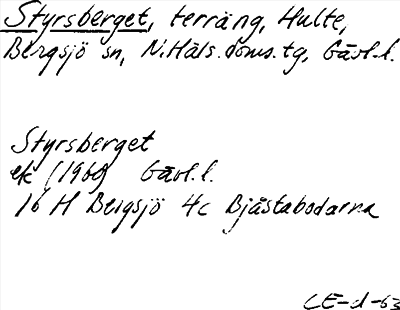 Styrsberget, terräng, Hulte,
Bergsjö sn, N.Häls.doms.tg, Gävl.l.
Styrsberget
ek (1960) Gävl.l.
16 H Bergsjö 4c Bjåstabodarna
CE-d-63